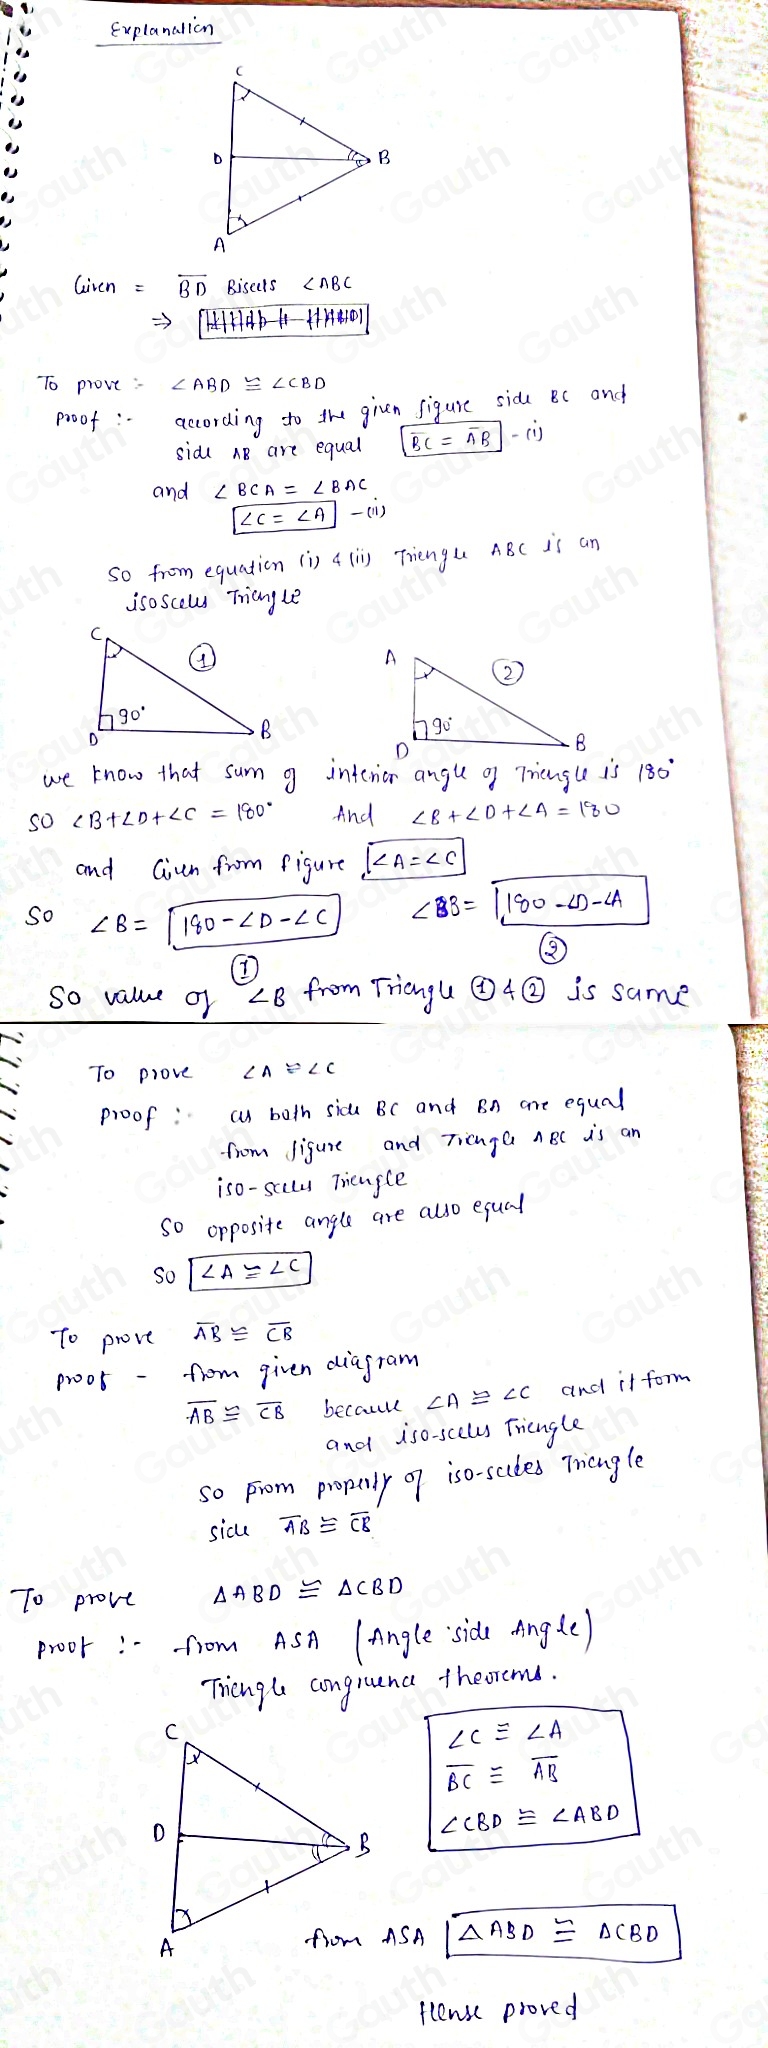 Explanation
C
D
B
A
Given = BD Bisects ∠ABC
⇒
To prove :- ∠ABD ≅ ∠CBD
Proof :- according to the given figure side BC and
side AB are equal BC = AB - (i)
and ∠BCA = ∠BAC
∠C = ∠A - (ii)
So from equation (i) & (ii) Triengle ABC is an
isosceles Triengle
C
1
90°
D
B
A
2
90°
D
B
we know that sum of interior angle of Triengle is 180°
SO ∠B+∠D+∠C = 180° And ∠B+∠D+∠A = 180
and Given from figure, ∠A=∠C
So ∠B = 180-∠D-∠C ∠B = 180-∠D-∠A
1
2
So value of ∠B from Triengle 1 & 2 is same
To prove ∠A ≅ ∠C
proof :- as both side BC and BA are equal
from figure and Triengle ABC is an
iso-sceles Triengle
So opposite angle are also equal
So ∠A ≅ ∠C
To prove AB ≅ CB
proof - from given diagram
AB ≅ CB because ∠A ≅ ∠C and it form
and iso-sceles Triengle
So from property of iso-sceles Triengle
side AB ≅ CB
To prove ΔABD ≅ ΔCBD
proof :- from ASA (Angle side Angle)
Triengle congruence theorems.
C
D
B
A
∠C ≅ ∠A
BC ≅ AB
∠CBD ≅ ∠ABD
from ASA ΔABD ≅ ΔCBD
Hense proved